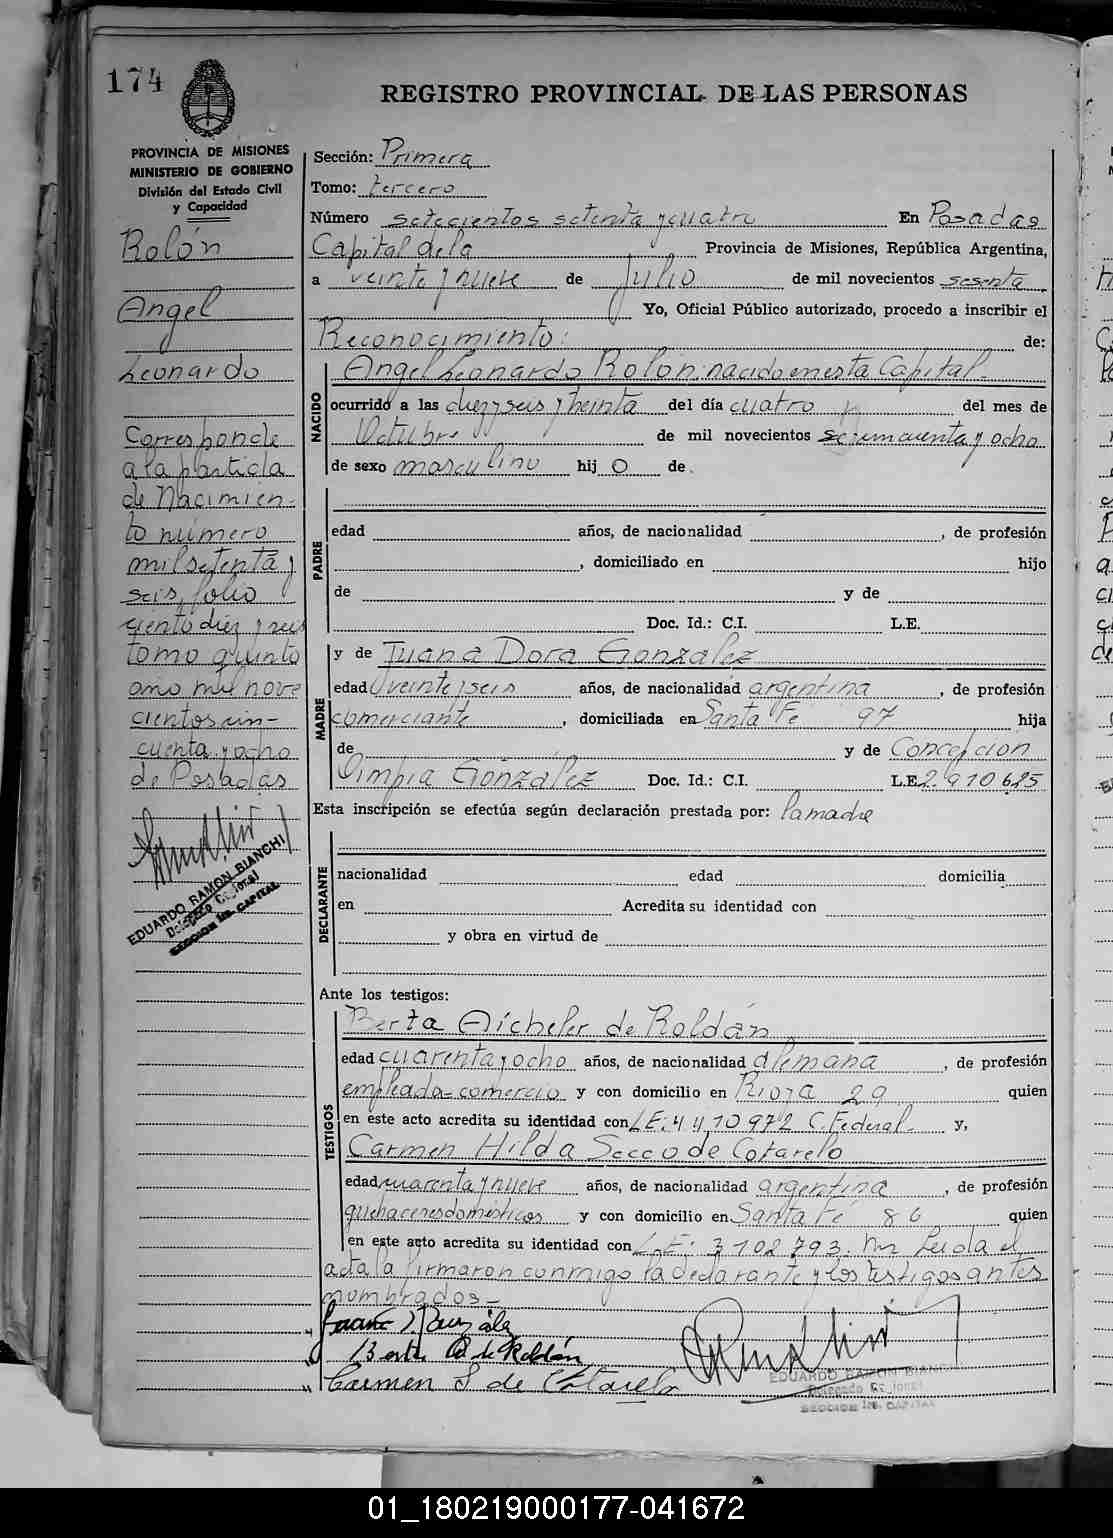 174
REGISTRO PROVINCIAL DE LAS PERSONAS
PROVINCIA DE MISIONES
MINISTERIO DE GOBIERNO
División del Estado Civil
y Capacidad
Rolón
Angel
Leonardo
Corresponde
a la partida
de Nacimien-
to número
mil setenta y
seis, folio
ciento diez y seis
tomo quinto
año mil nove
cientos cin-
cuenta y ocho
de Posadas
EDUARDO RAMON BIANCHI
Delegado
SECCION 1ra. CAPITAL
Sección: Primera
Tomo: tercero
Número setecientos setenta y cuatro En Posadas
Capital de la Provincia de Misiones, República Argentina,
a veinte y nueve de Julio de mil novecientos sesenta
Yo, Oficial Público autorizado, procedo a inscribir el
Reconocimiento: de:
NACIDO
Angel Leonardo Rolón: nacido en esta Capital-
ocurrido a las diez y seis y treinta del día cuatro del mes de
Octubre de mil novecientos cincuenta y ocho
de sexo masculino hij o de
PADRE
edad años, de nacionalidad , de profesión
, domiciliado en hijo
de y de
Doc. Id.: C.I. L.E.
MADRE
y de Juana Dora González
edad veinte y seis años, de nacionalidad argentina , de profesión
comerciante , domiciliada en Santa Fe 97 hija
de y de Concepcion
Olimpia González Doc. Id.: C.I. L.E. 2.910.685
Esta inscripción se efectúa según declaración prestada por: la madre
DECLARANTE
nacionalidad edad domicilia
en Acredita su identidad con
y obra en virtud de
Ante los testigos:
TESTIGOS
Berta Aicheler de Roldán
edad cuarenta y ocho años, de nacionalidad alemana , de profesión
empleada-comercio y con domicilio en Rioja 29 quien
en este acto acredita su identidad con LE: 4410972 C. Federal- y,
Carmen Hilda Secco de Cotarelo
edad cuarenta y nueve años, de nacionalidad argentina , de profesión
quehaceres domésticos y con domicilio en Santa Fé 86 quien
en este acto acredita su identidad con L.E: 3102793. Leida el
acta la firmaron conmigo la declarante y los testigos antes
nombrados-
Berta A. de Roldán
Carmen S. de Cotarelo
EDUARDO RAMON BIANCHI
Delegado
SECCION 1ra. CAPITAL
01_180219000177-041672